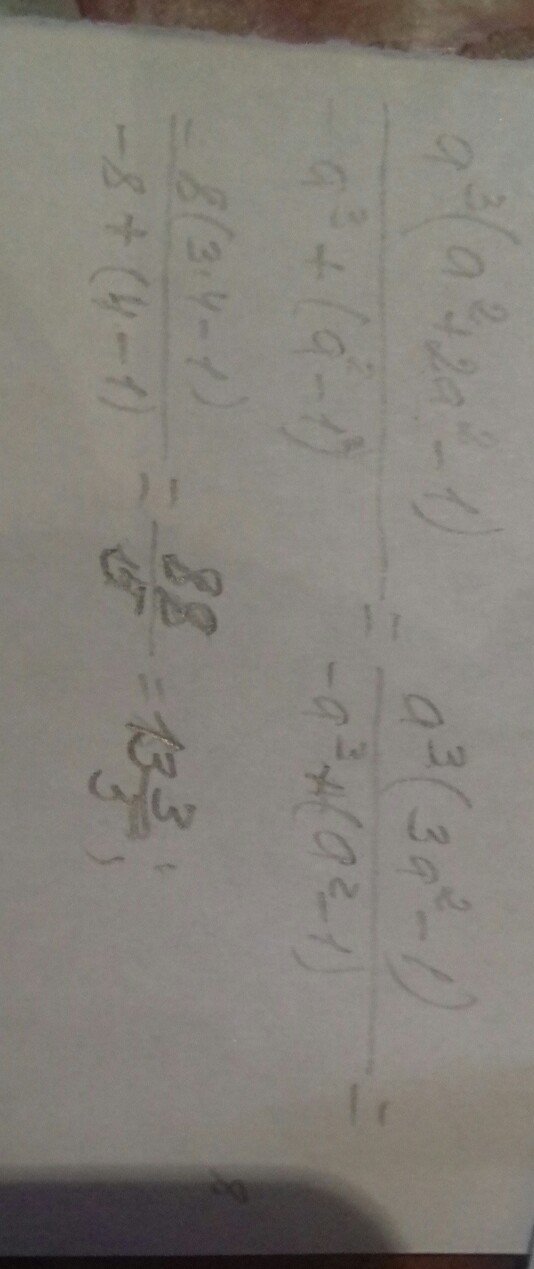 a³(a²+2a²-1) / -a³+(a²-1) = a³(3a²-1) / -a³+(a²-1) =
= 8(3·4-1) / -8+(4-1) = 88 / = 13